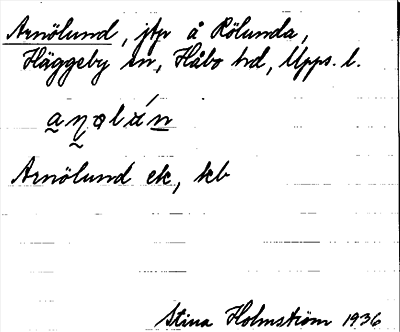 Arnölund, jfr å Rölunda,
Häggeby sn, Håbo hd, Upps. l.
Arnölund ek, kb
Stina Holmström 1936